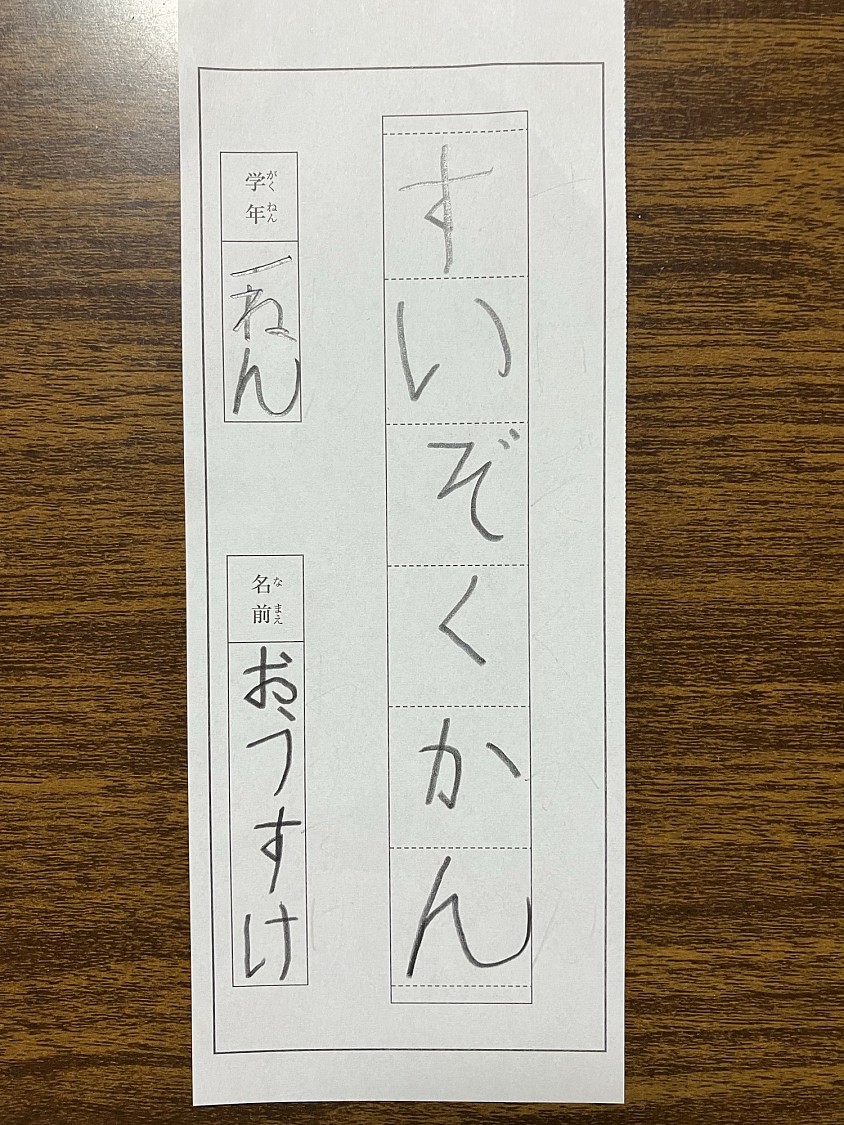 すいぞくかん
学年
がくねん
一ねん
名前
なまえ
おうすけ